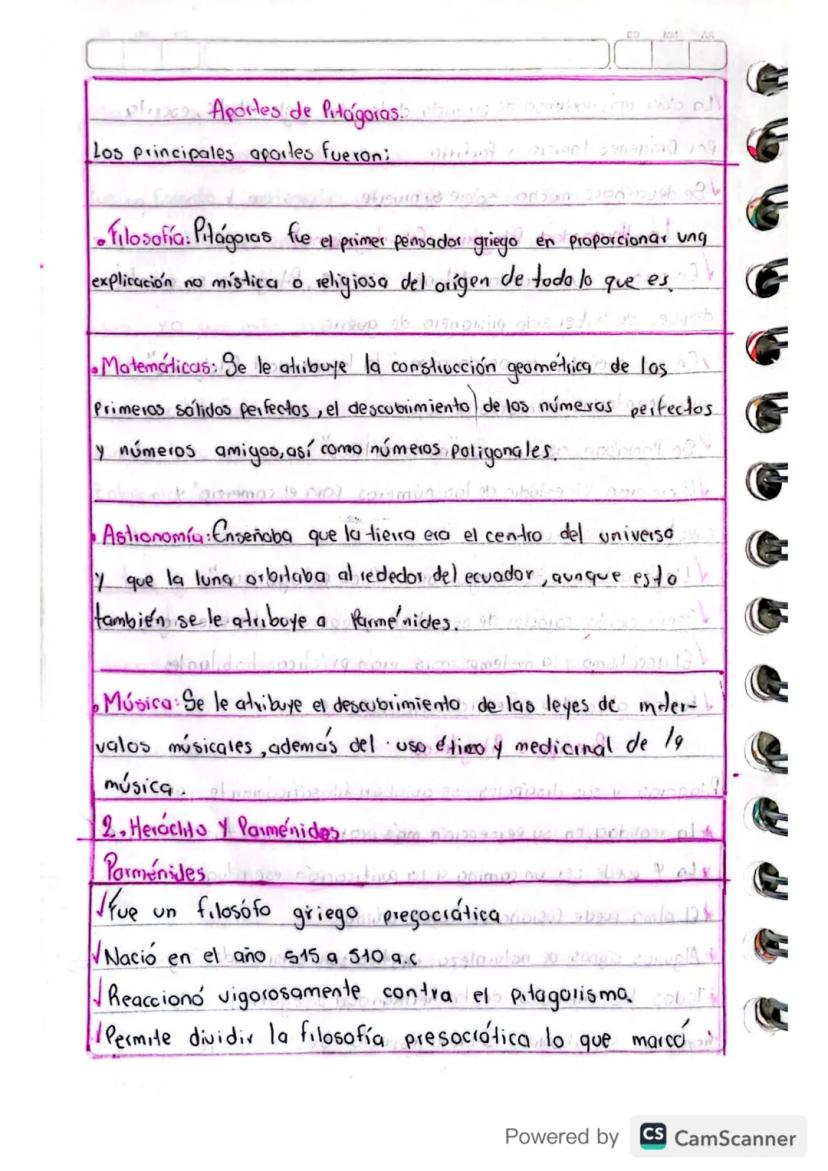 Aportes de Pitágoras.
Los principales aportes fueron:
• Filosofía: Pitágoras fue el primer pensador griego en proporcionar una
explicación no mística o religiosa del orígen de todo lo que es.
• Matemáticas: Se le atribuye la construcción geométrica de los
primeros sólidos perfectos, el descubrimiento de los números perfectos
y números amigos, así como números poligonales.
• Astronomía: Enseñaba que la tierra era el centro del universo
y que la luna orbitaba al rededor del ecuador, aunque esto
también se le atribuye a Parménides.
• Música: Se le atribuye el descubrimiento de las leyes de inter-
valos músicales, además del uso y medicinal de la
música.
2. Heráclito y Parménides
Parménides
✓ Fue un filosófo griego presocrática
✓ Nació en el año 515 a 510 a.c
✓ Reaccionó vigorosamente contra el pitagorismo.
✓ Permite dividir la filosofía presocrática lo que marcó
Powered by CS CamScanner